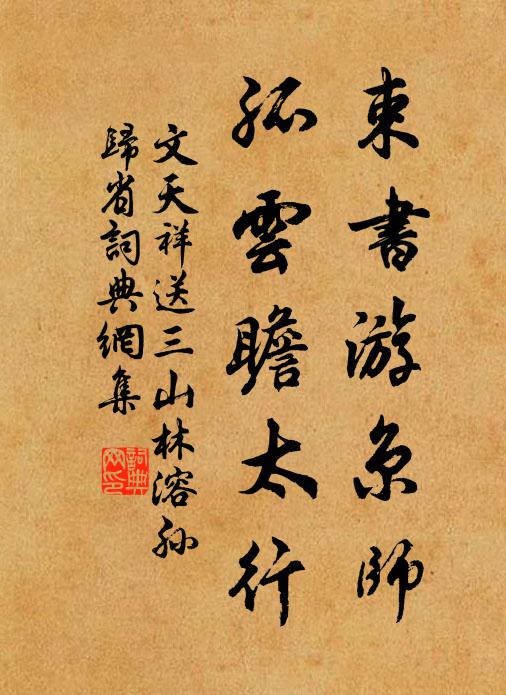 束書游京師
孤雲瞻太行
文天祥送三山林溶孫
歸省詞典網集
詞典網印